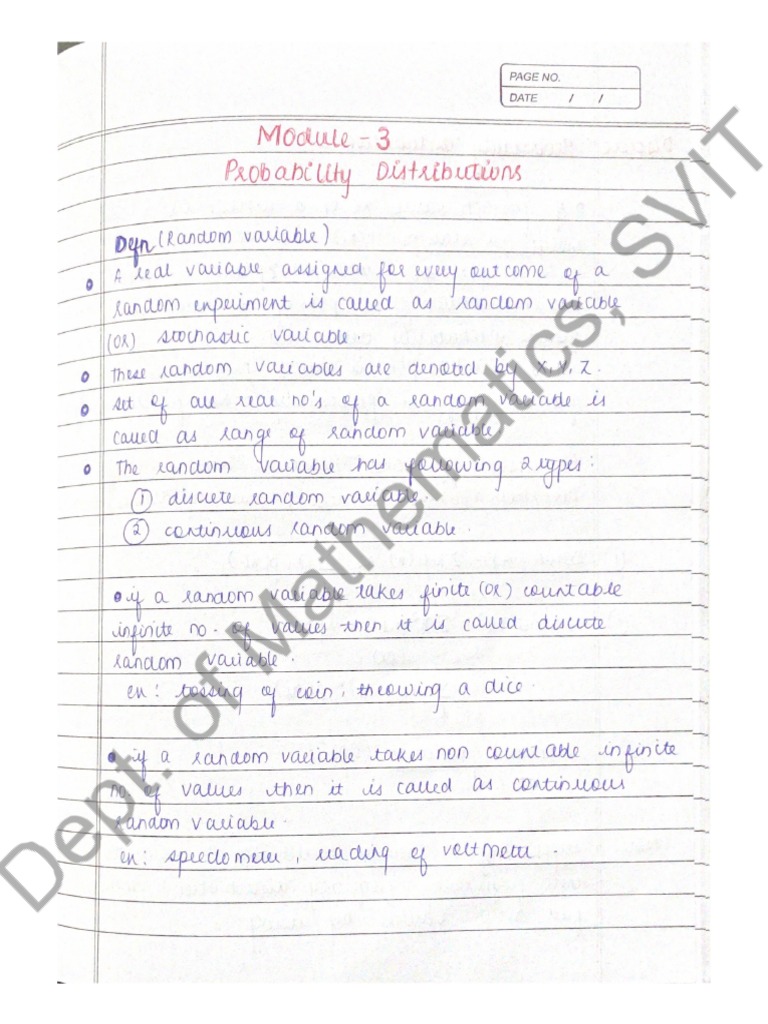 PAGE NO.
DATE / /
Module - 3
Probability Distributions
Defn (Random variable)
A real variable assigned for every outcome of a
random experiment is called as random variable
(OR) stochastic variable.
These random variables are denoted by X, Y, Z.
Set of all real no's of a random variable is
called as range of random variable
The random variable has following 2 types:
① discrete random variable.
② continuous random variable.
if a random variable takes finite (OR) countable
infinite no. of values then it is called discrete
random variable.
ex: tossing of coin, throwing a dice.
if a random variable takes non countable infinite
no. of values then it is called as continuous
random variable.
ex: speedometer, reading of voltmeter.
Dept. of Mathematics, SVIT